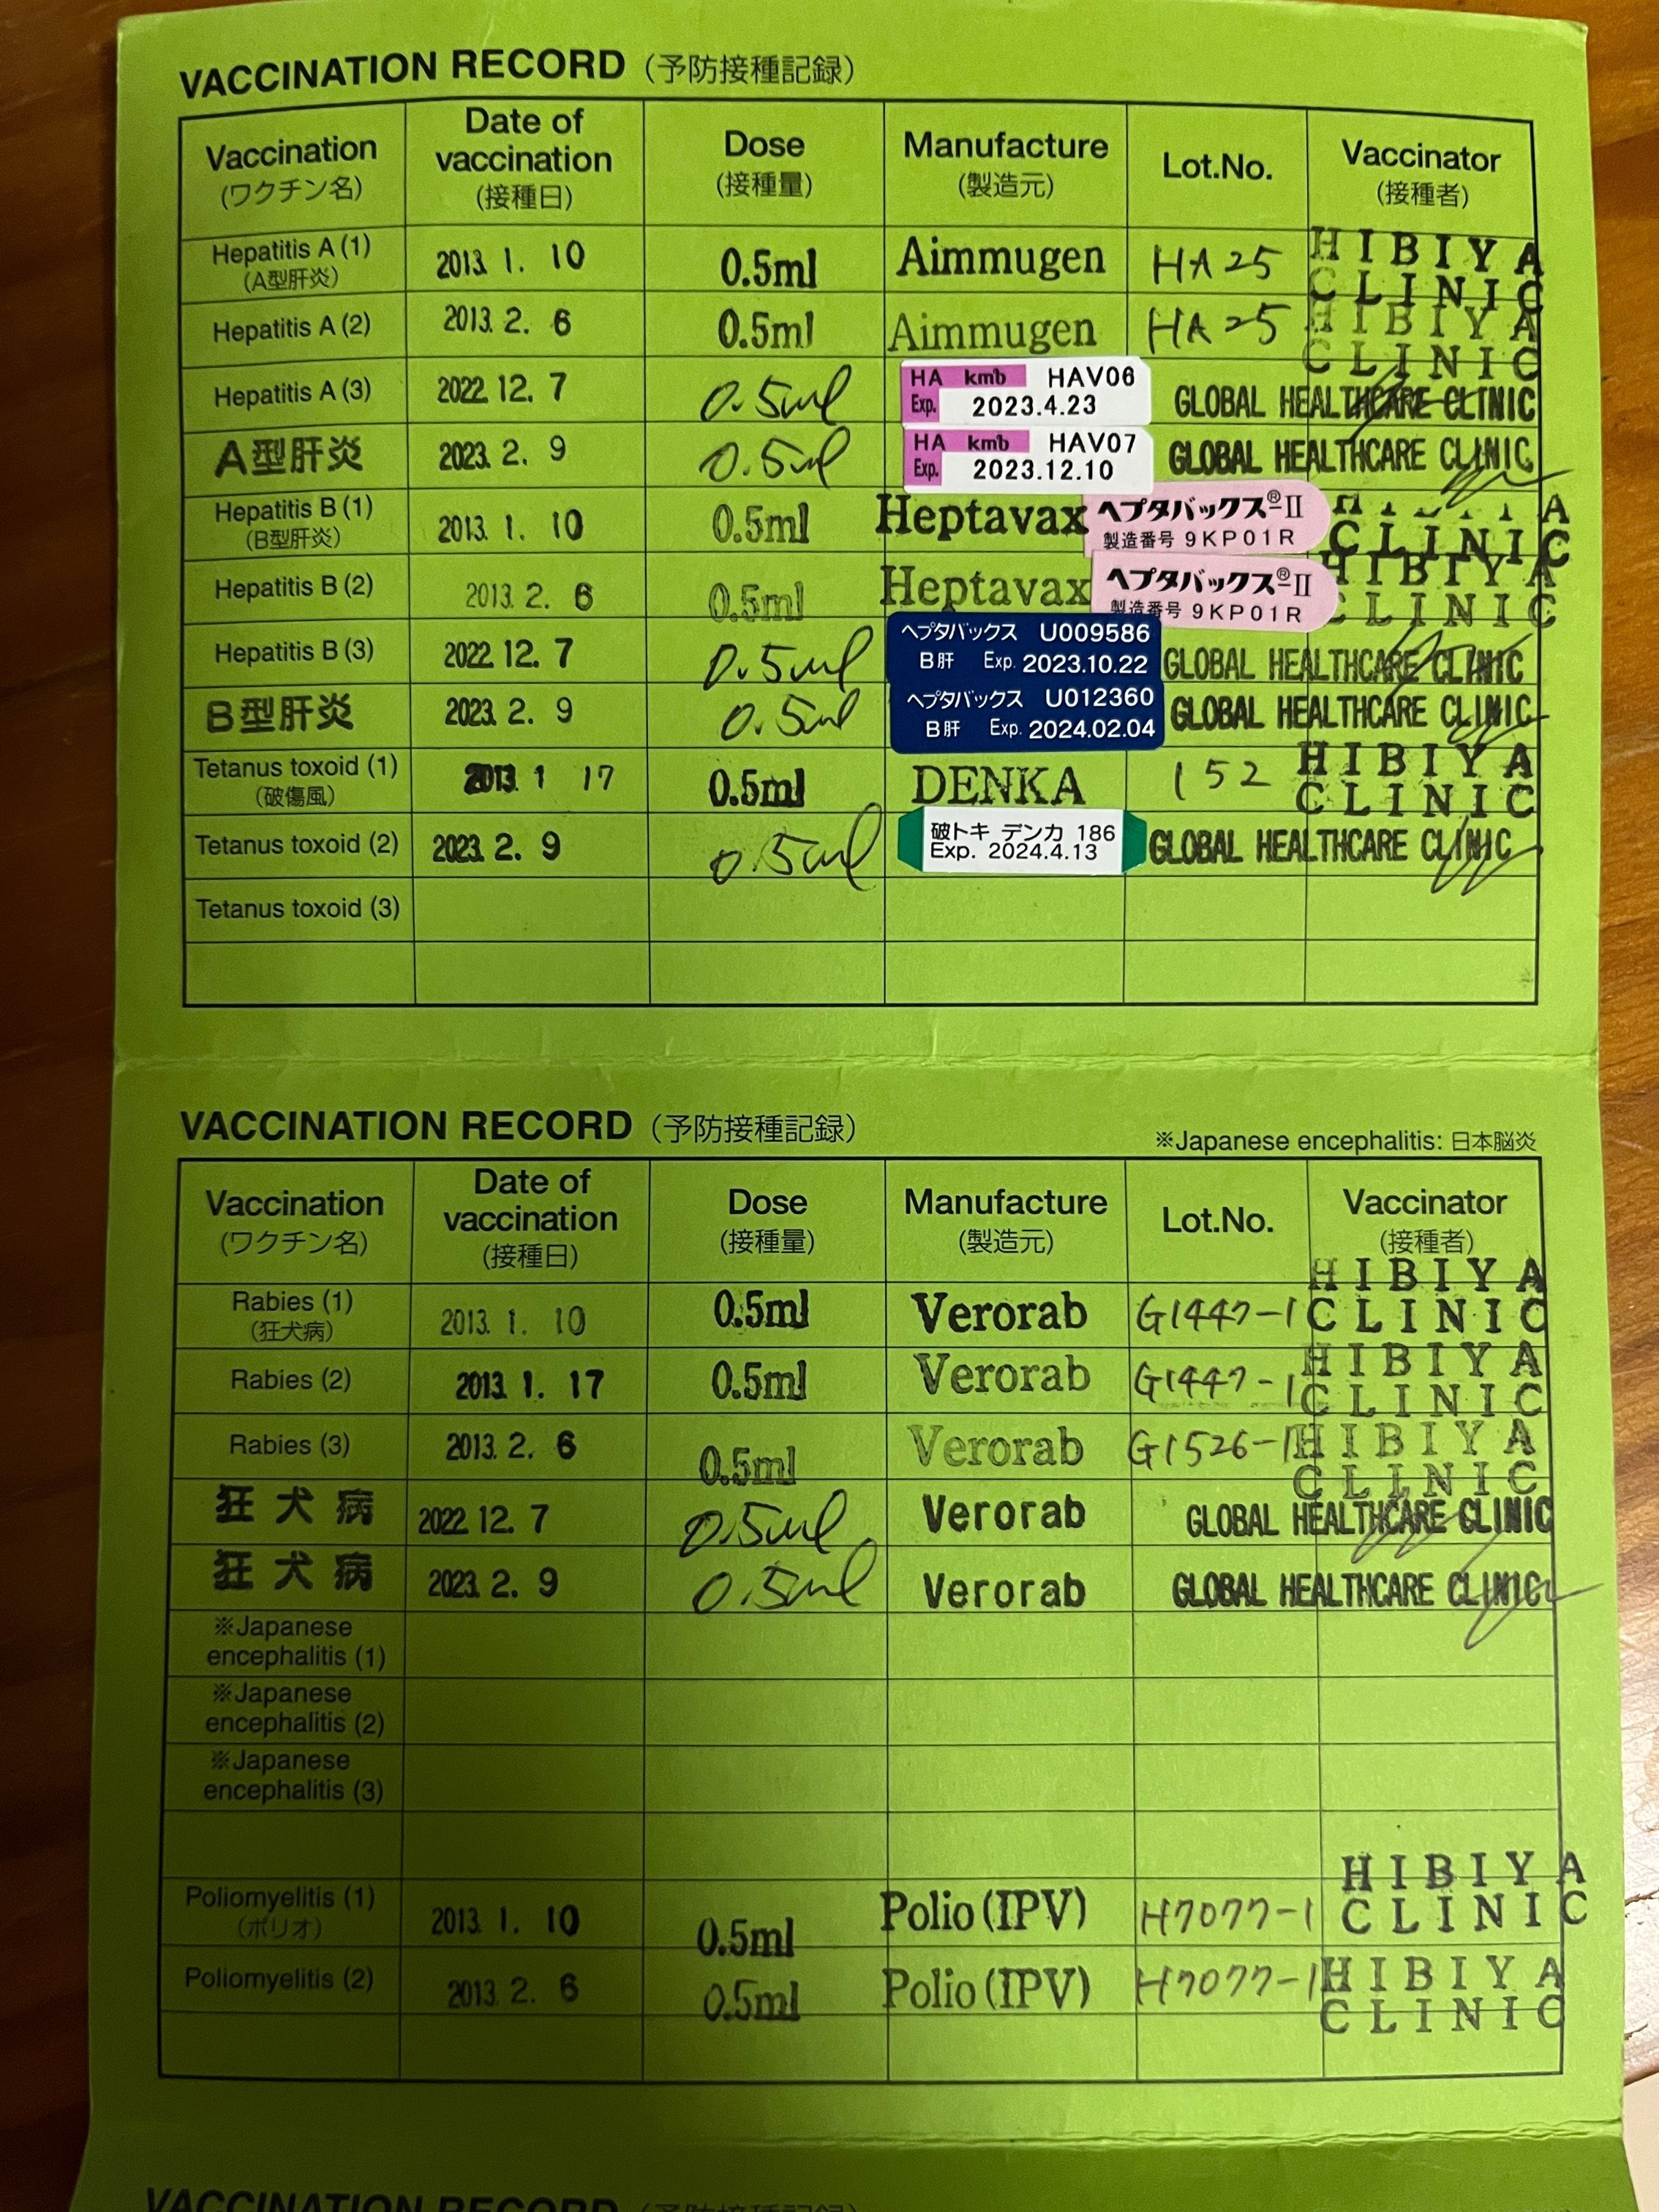 VACCINATION RECORD（予防接種記録）
Vaccination
(ワクチン名)
Date of
vaccination
(接種日)
Dose
(接種量)
Manufacture
(製造元)
Lot.No.
Vaccinator
(接種者)
Hepatitis A (1)
(A型肝炎)
2013. 1. 10
0.5ml
Aimmugen
HA25
HIBIYA
CLINIC
Hepatitis A (2)
2013. 2. 6
0.5ml
Aimmugen
HA25
HIBIYA
CLINIC
Hepatitis A (3)
2022. 12. 7
0.5ml
HA kmb HAV06
Exp. 2023.4.23
GLOBAL HEALTHCARE CLINIC
A型肝炎
2023. 2. 9
0.5ml
HA kmb HAV07
Exp. 2023.12.10
GLOBAL HEALTHCARE CLINIC
Hepatitis B (1)
(B型肝炎)
2013. 1. 10
0.5ml
Heptavax
ヘプタバックス®-II
製造番号 9KP01R
CLINIC
Hepatitis B (2)
2013. 2. 6
0.5ml
Heptavax
ヘプタバックス®-II
製造番号 9KP01R
HIBIYA
CLINIC
Hepatitis B (3)
2022 12. 7
0.5ml
ヘプタバックス U009586
B肝 Exp. 2023.10.22
GLOBAL HEALTHCARE CLINIC
B型肝炎
2023. 2. 9
0.5ml
ヘプタバックス U012360
B肝 Exp. 2024.02.04
GLOBAL HEALTHCARE CLINIC
Tetanus toxoid (1)
(破傷風)
2013. 1 17
0.5ml
DENKA
152
HIBIYA
CLINIC
Tetanus toxoid (2)
2023. 2. 9
0.5ml
破トキ デンカ 186
Exp. 2024.4.13
GLOBAL HEALTHCARE CLINIC
Tetanus toxoid (3)
VACCINATION RECORD（予防接種記録）
※Japanese encephalitis: 日本脳炎
Vaccination
(ワクチン名)
Date of
vaccination
(接種日)
Dose
(接種量)
Manufacture
(製造元)
Lot.No.
Vaccinator
(接種者)
Rabies (1)
(狂犬病)
2013. 1. 10
0.5ml
Verorab
G1447-1
HIBIYA
CLINIC
Rabies (2)
2013. 1. 17
0.5ml
Verorab
G1447-1
HIBIYA
CLINIC
Rabies (3)
2013. 2. 6
0.5ml
Verorab
G1526-1
HIBIYA
CLINIC
狂犬病
2022 12. 7
0.5ml
Verorab
GLOBAL HEALTHCARE CLINIC
狂犬病
2023. 2. 9
0.5ml
Verorab
GLOBAL HEALTHCARE CLINIC
※Japanese
encephalitis (1)
※Japanese
encephalitis (2)
※Japanese
encephalitis (3)
Poliomyelitis (1)
(ポリオ)
2013. 1. 10
0.5ml
Polio (IPV)
H7077-1
HIBIYA
CLINIC
Poliomyelitis (2)
2013. 2. 6
0.5ml
Polio (IPV)
H7077-1
HIBIYA
CLINIC
VACCINATION RECORD（予防接種記録）